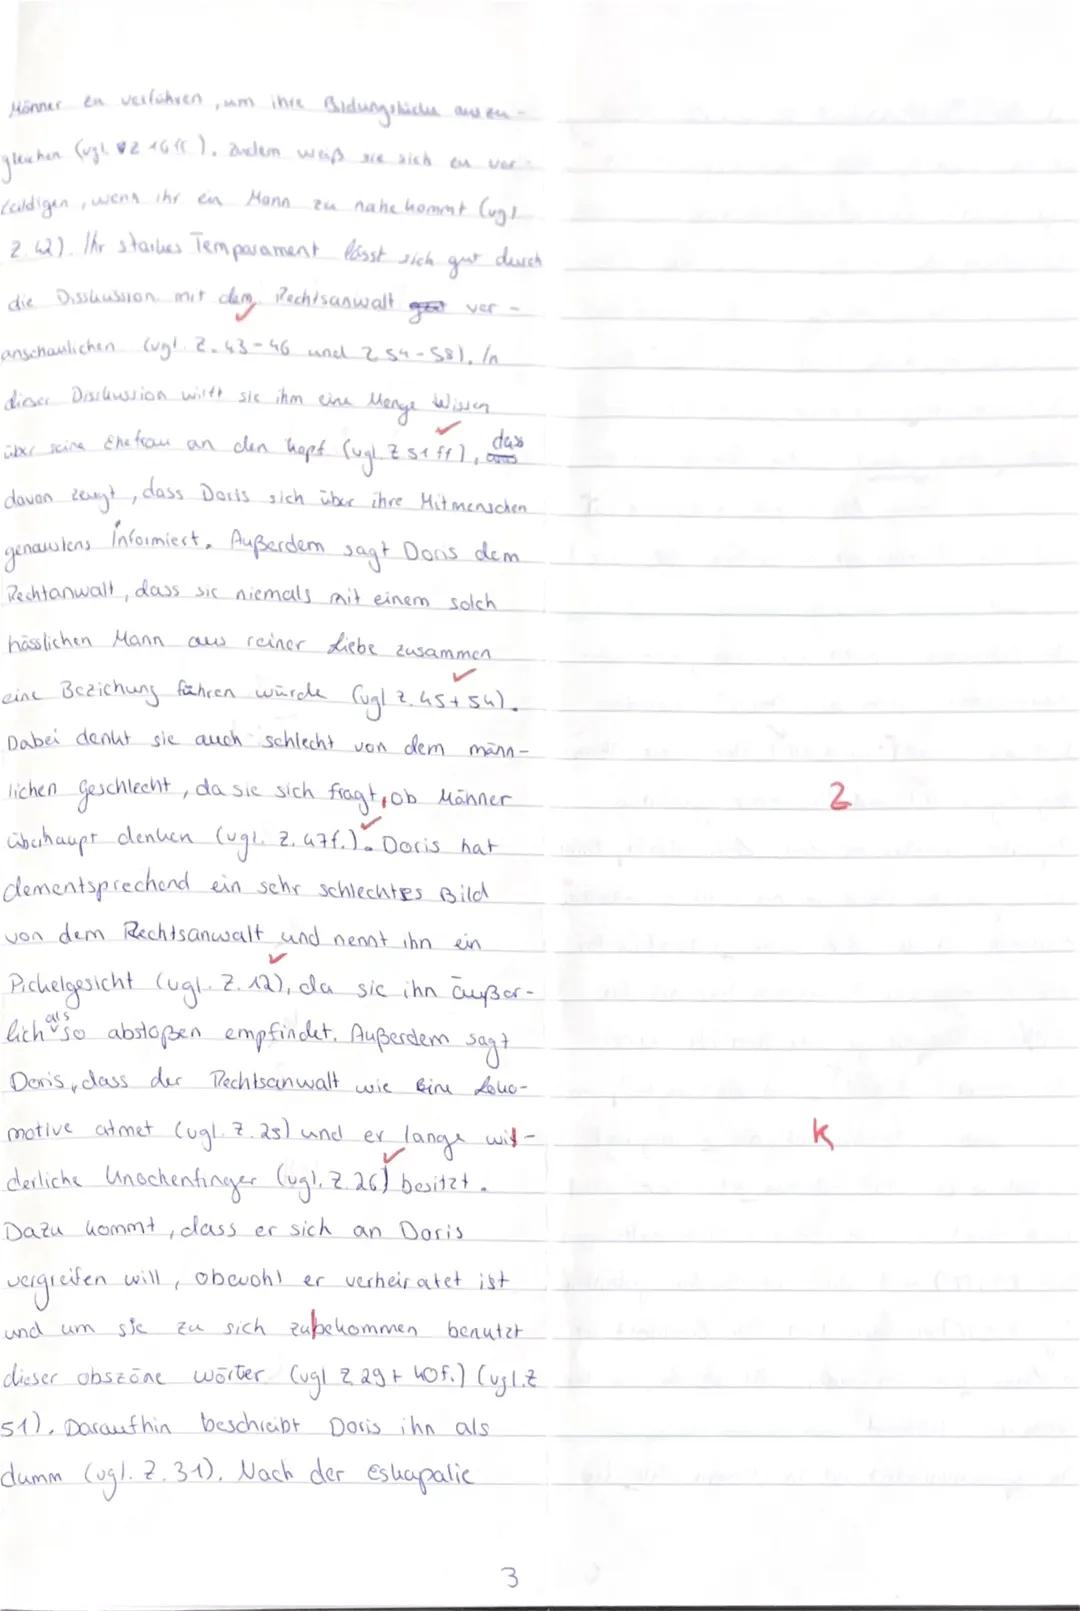 Männer zu verführen, um ihre Bildungslücke auszu-
gleichen (vgl. Z 16ff). Zudem weiß sie sich zu ver-
teidigen, wenn ihr ein Mann zu nahe kommt (vgl
Z. 42). Ihr starkes Temparament lässt sich gut durch
die Disskussion mit dem Rechtsanwalt ver-
anschaulichen (vgl. Z. 43-46 und Z 54-58). In
dieser Disskussion wirft sie ihm eine Menge Wissen
über seine Ehefrau an den Kopf (vgl. Z 51 ff), das
davon zeugt, dass Doris sich über ihre Mitmenschen
genaustens informiert. Außerdem sagt Doris dem
Rechtanwalt, dass sie niemals mit einem solch
hässlichen Mann aus reiner Liebe zusammen
eine Beziehung führen würde (vgl Z. 45+54).
Dabei denkt sie auch schlecht von dem männ-
lichen geschlecht, da sie sich fragt, ob Männer
2
überhaupt denken (vgl. Z. 47f.). Doris hat
dementsprechend ein sehr schlechtes Bild
von dem Rechtsanwalt und nennt ihn ein
Pickelgesicht (vgl. Z. 12), da sie ihn äußer-
lich als so abstoßen empfindet. Außerdem sagt
Doris, dass der Rechtsanwalt wie eine Loko-
motive atmet (vgl. Z. 25) und er lange wie-
K
derliche Knochenfinger (vgl. Z. 26) besitzt.
Dazu kommt, dass er sich an Doris
vergreifen will, obwohl er verheiratet ist
und um sie zu sich zubekommen benutzt
dieser obszöne wörter (vgl Z 29 + 40f.) (vgl. Z
51). Daraufhin beschreibt Doris ihn als
dumm (vgl. Z. 31). Nach der Eskapalie
3